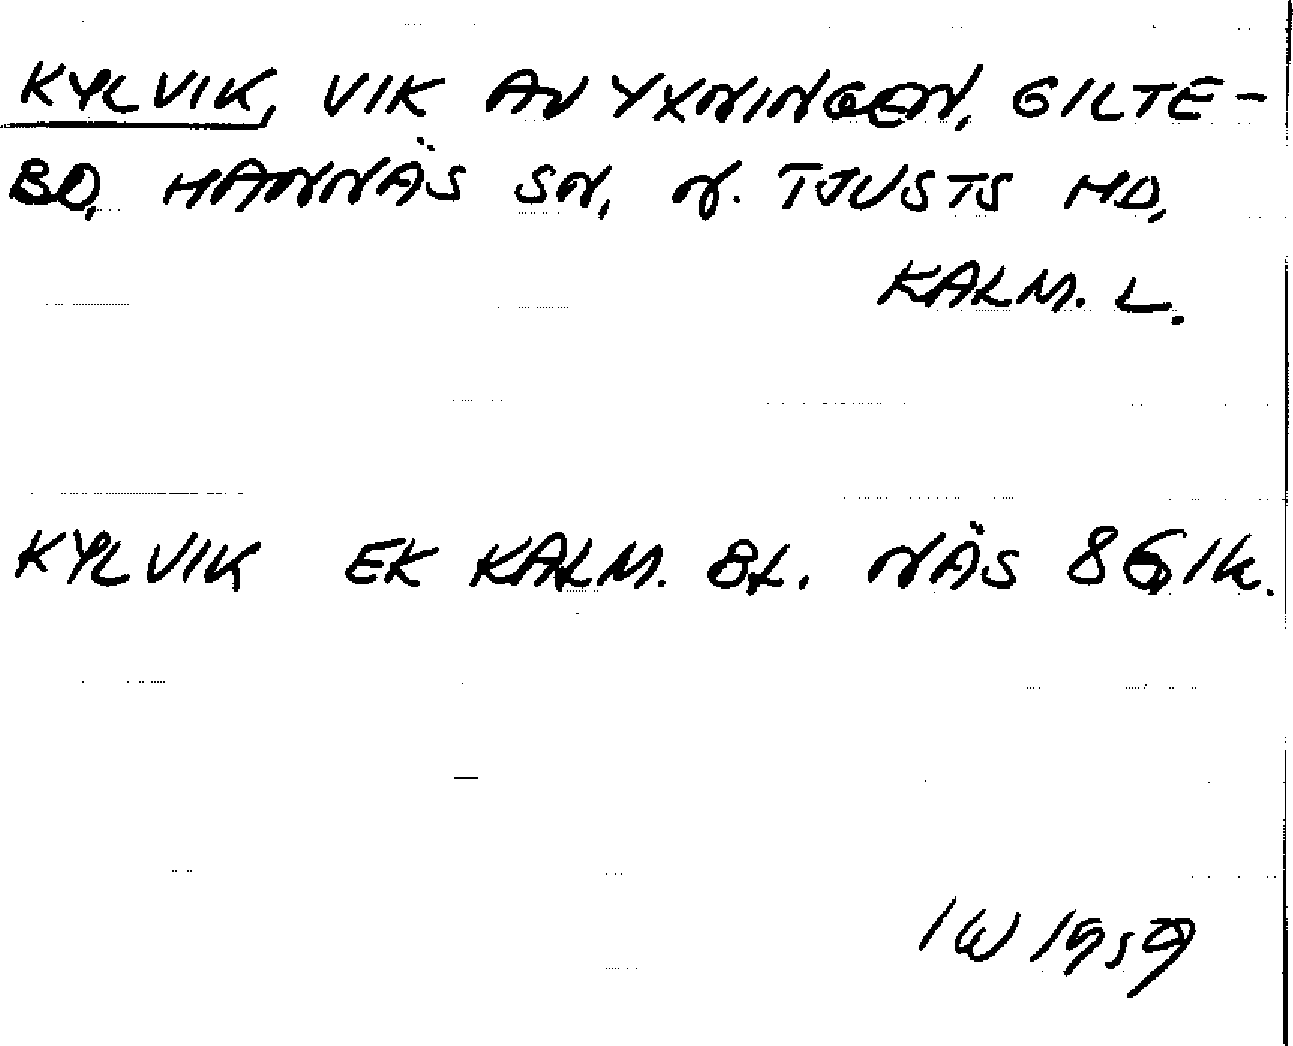 KYLVIK, VIK AV YXNINGEN, GILTE-
BO, HANNÄS SN, N. TJUSTS HD,
KALM. L.
KYLVIK EK KALM. BL. NÄS 86 1k.
IW 1959